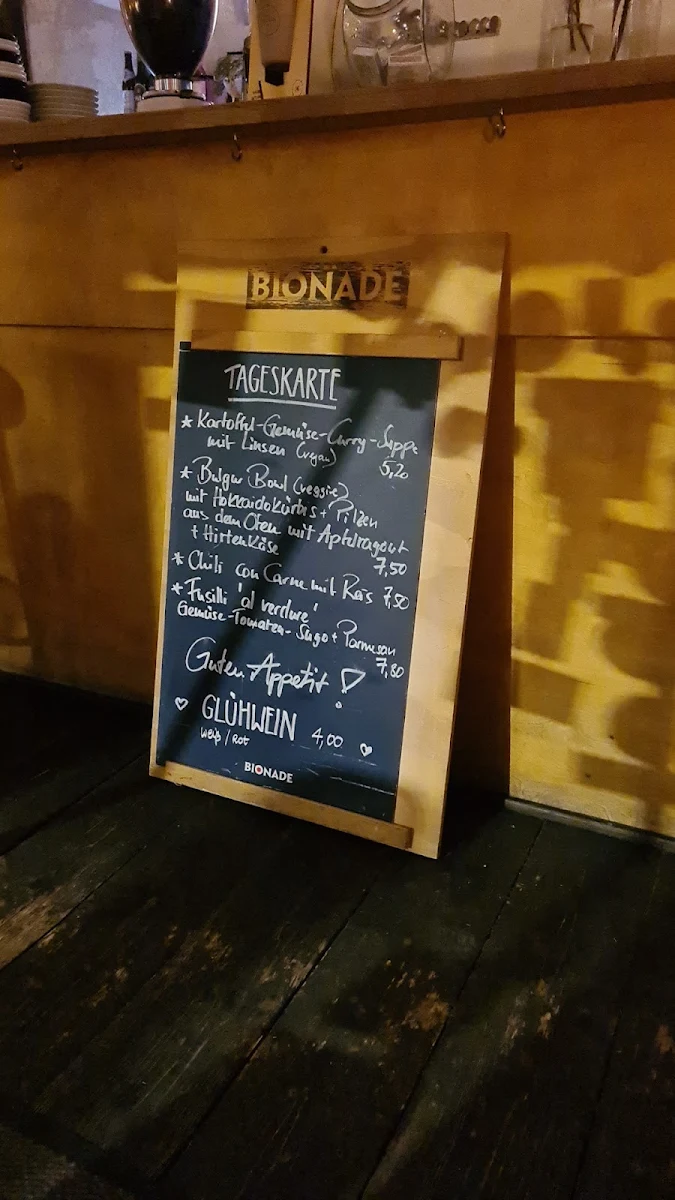 BIONADE
TAGESKARTE
* Kartoffel-Gemüse-Curry-Suppe
mit Linsen (vegan)
5,20
* Bulgur Bowl (veggie)
mit Hokkaidokürbis + Pilzen
aus dem Ofen mit Apfelragout
+ Hirtenkäse
7,50
* Chili con Carne mit Reis 7,50
* Fusilli 'al verdure'
Gemüse-Tomaten-Sugo + Parmesan
7,80
Guten Appetit!
♡ GLÜHWEIN 4,00 ♡
weiß / Rot
BIONADE